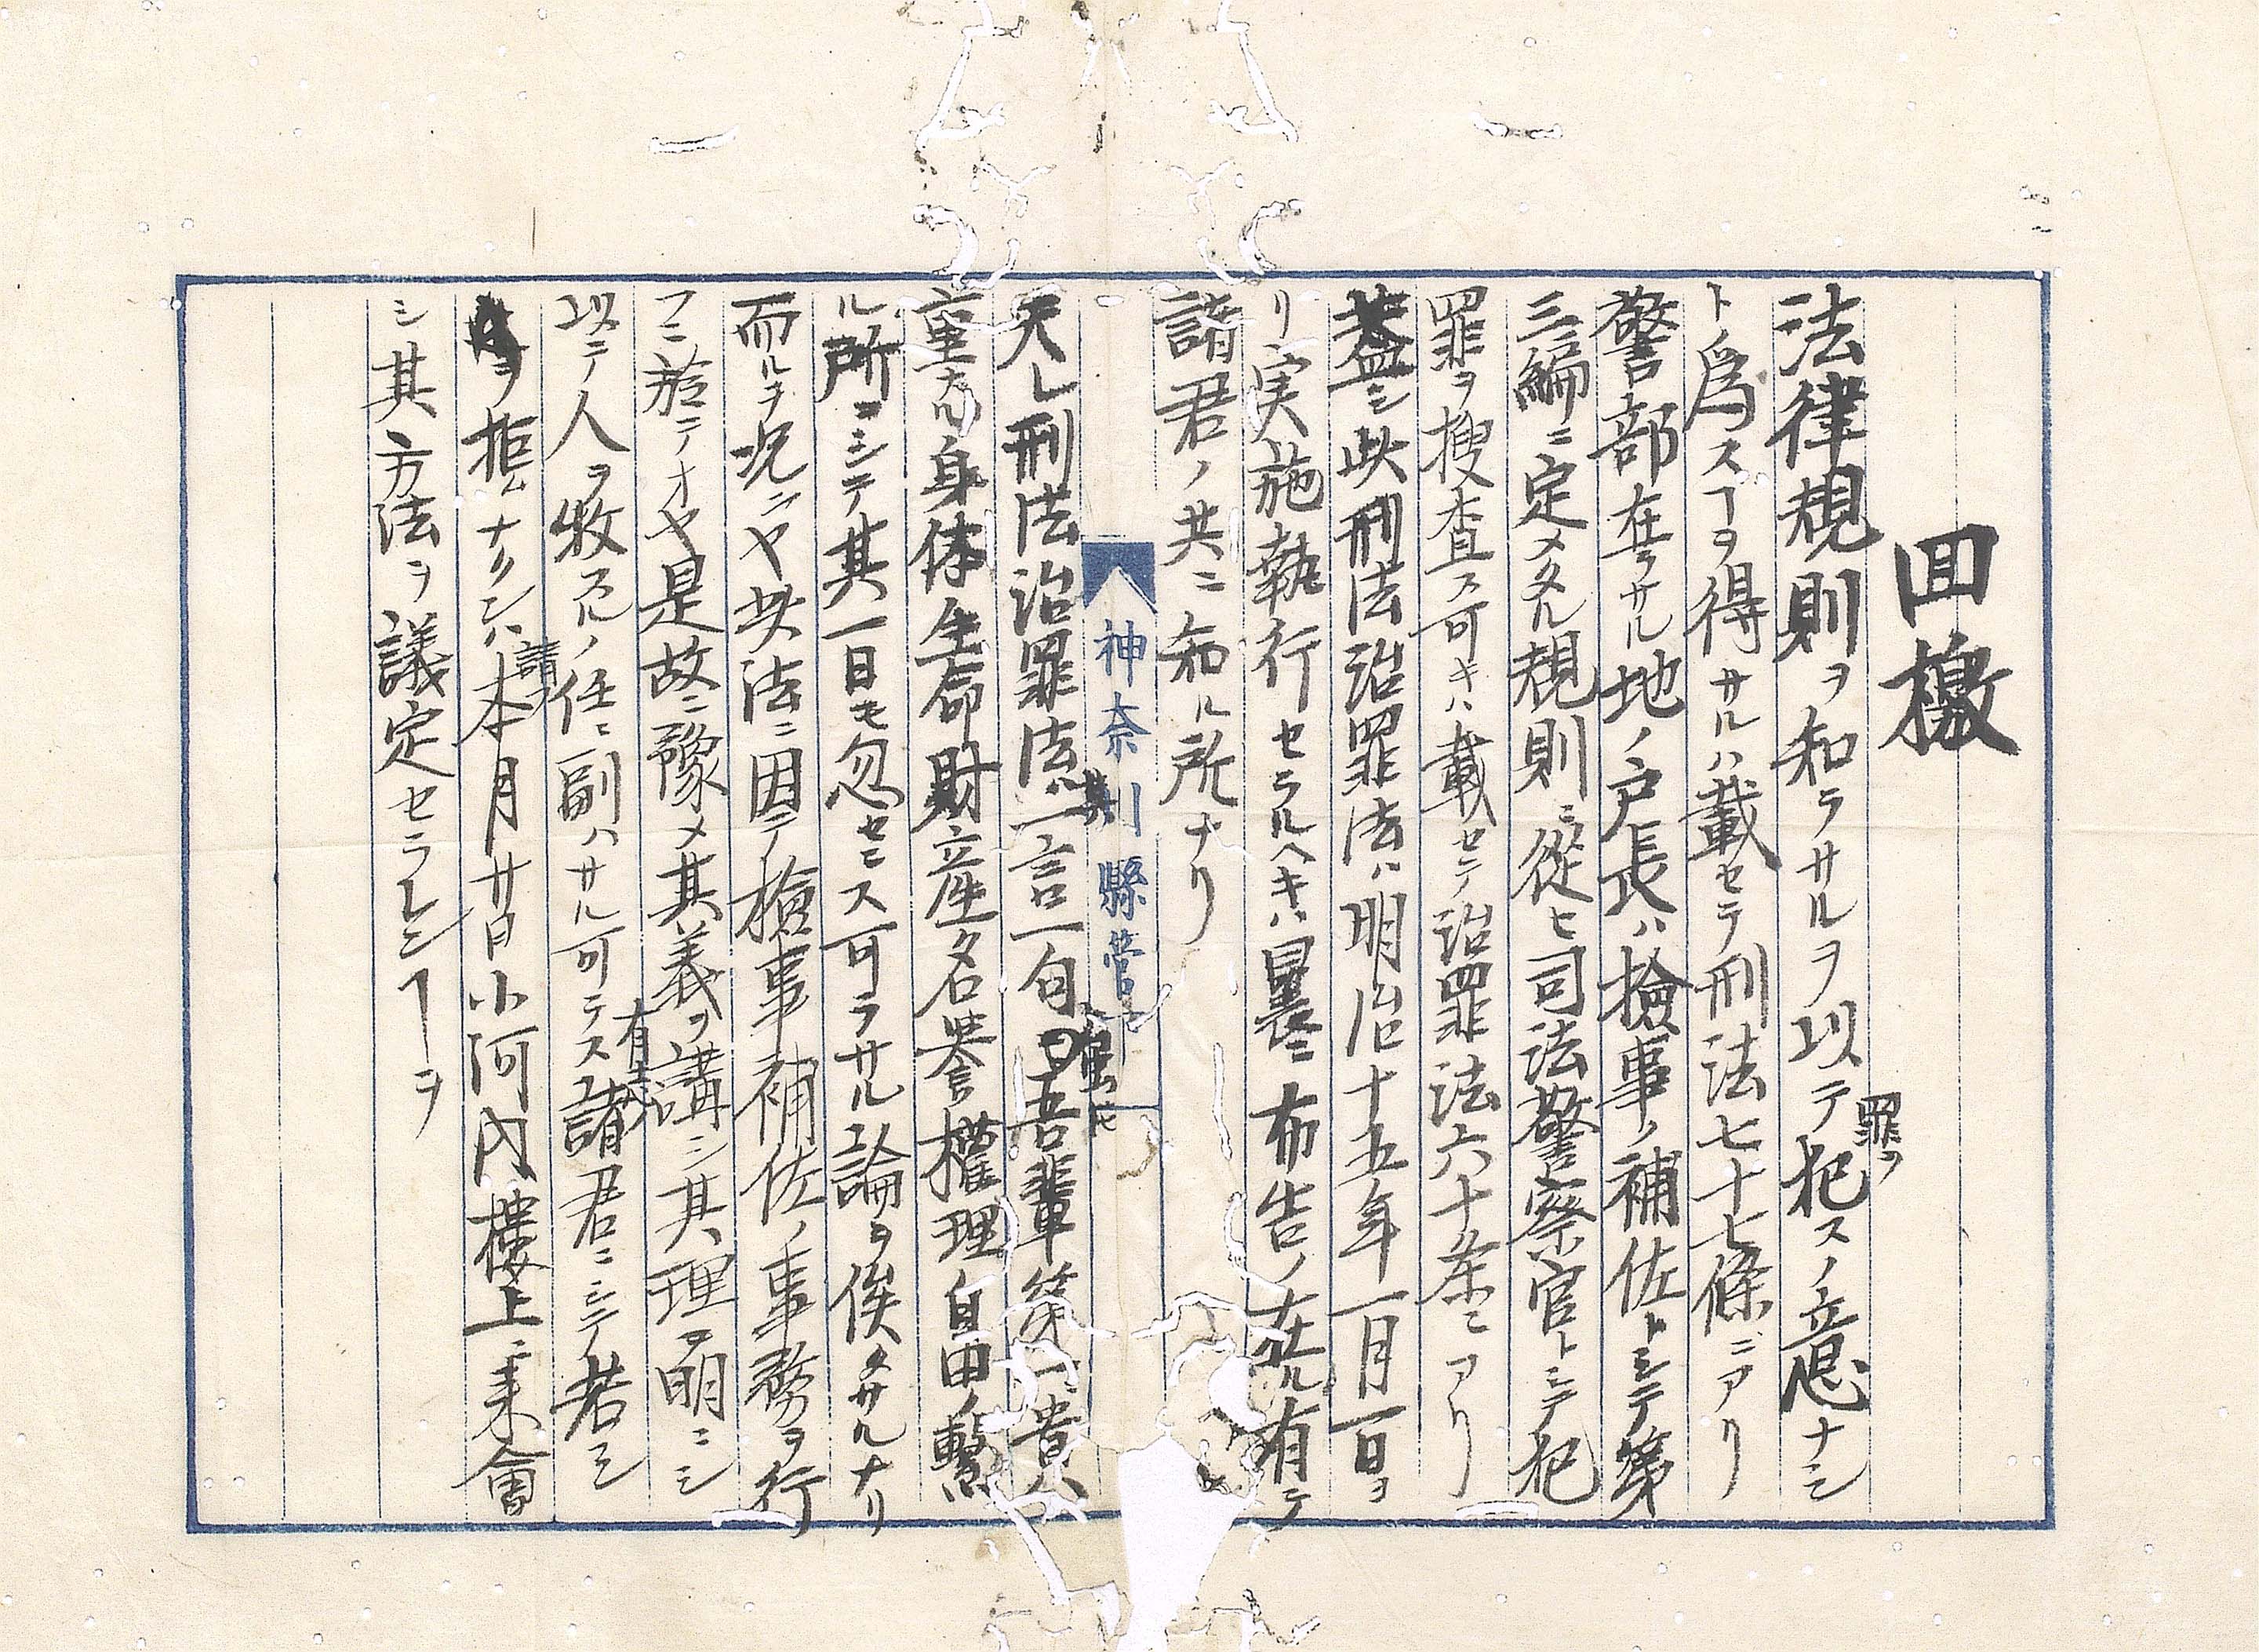 回檄
法律規則ヲ知ラサルヲ以テ罪ヲ犯スノ意ナシ
ト爲スヿヲ得サルハ載セテ刑法七十七條ニアリ
警部在ラサル地ノ戸長ハ檢事ノ補佐トシテ第
三編ニ定メタル規則ニ從ヒ司法警察官トシテ犯
罪ヲ搜査ス可キハ載セテ治罪法六十条ニアリ
蓋シ此刑法治罪法ハ明治十五年一月一日ヨ
リ実施執行セラルヘキハ曩ニ布告ノ在ル有テ
諸君ノ共ニ知ル所ナリ
神奈川縣
夫レ刑法治罪法其一言一句ト虽モ吾輩第一貴
重ナル身体生命財産名誉權理自由ノ繋
ル所ニシテ其一日モ忽セニス可ラサル論ヲ俟タサルナリ
而ルヲ况ニヤ此法ニ因テ檢事補佐ノ事務ヲ行
フニ於テオヤ是故ニ豫メ其義ヲ講シ其理ヲ明ニシ
以テ人ヲ牧スルノ任ニ副ハサル可ラス有志諸君ニシテ若シ
ヲ拒ムナクンハ請フ本月廿日小河内樓上ニ来會
シ其方法ヲ議定セラレンヿヲ